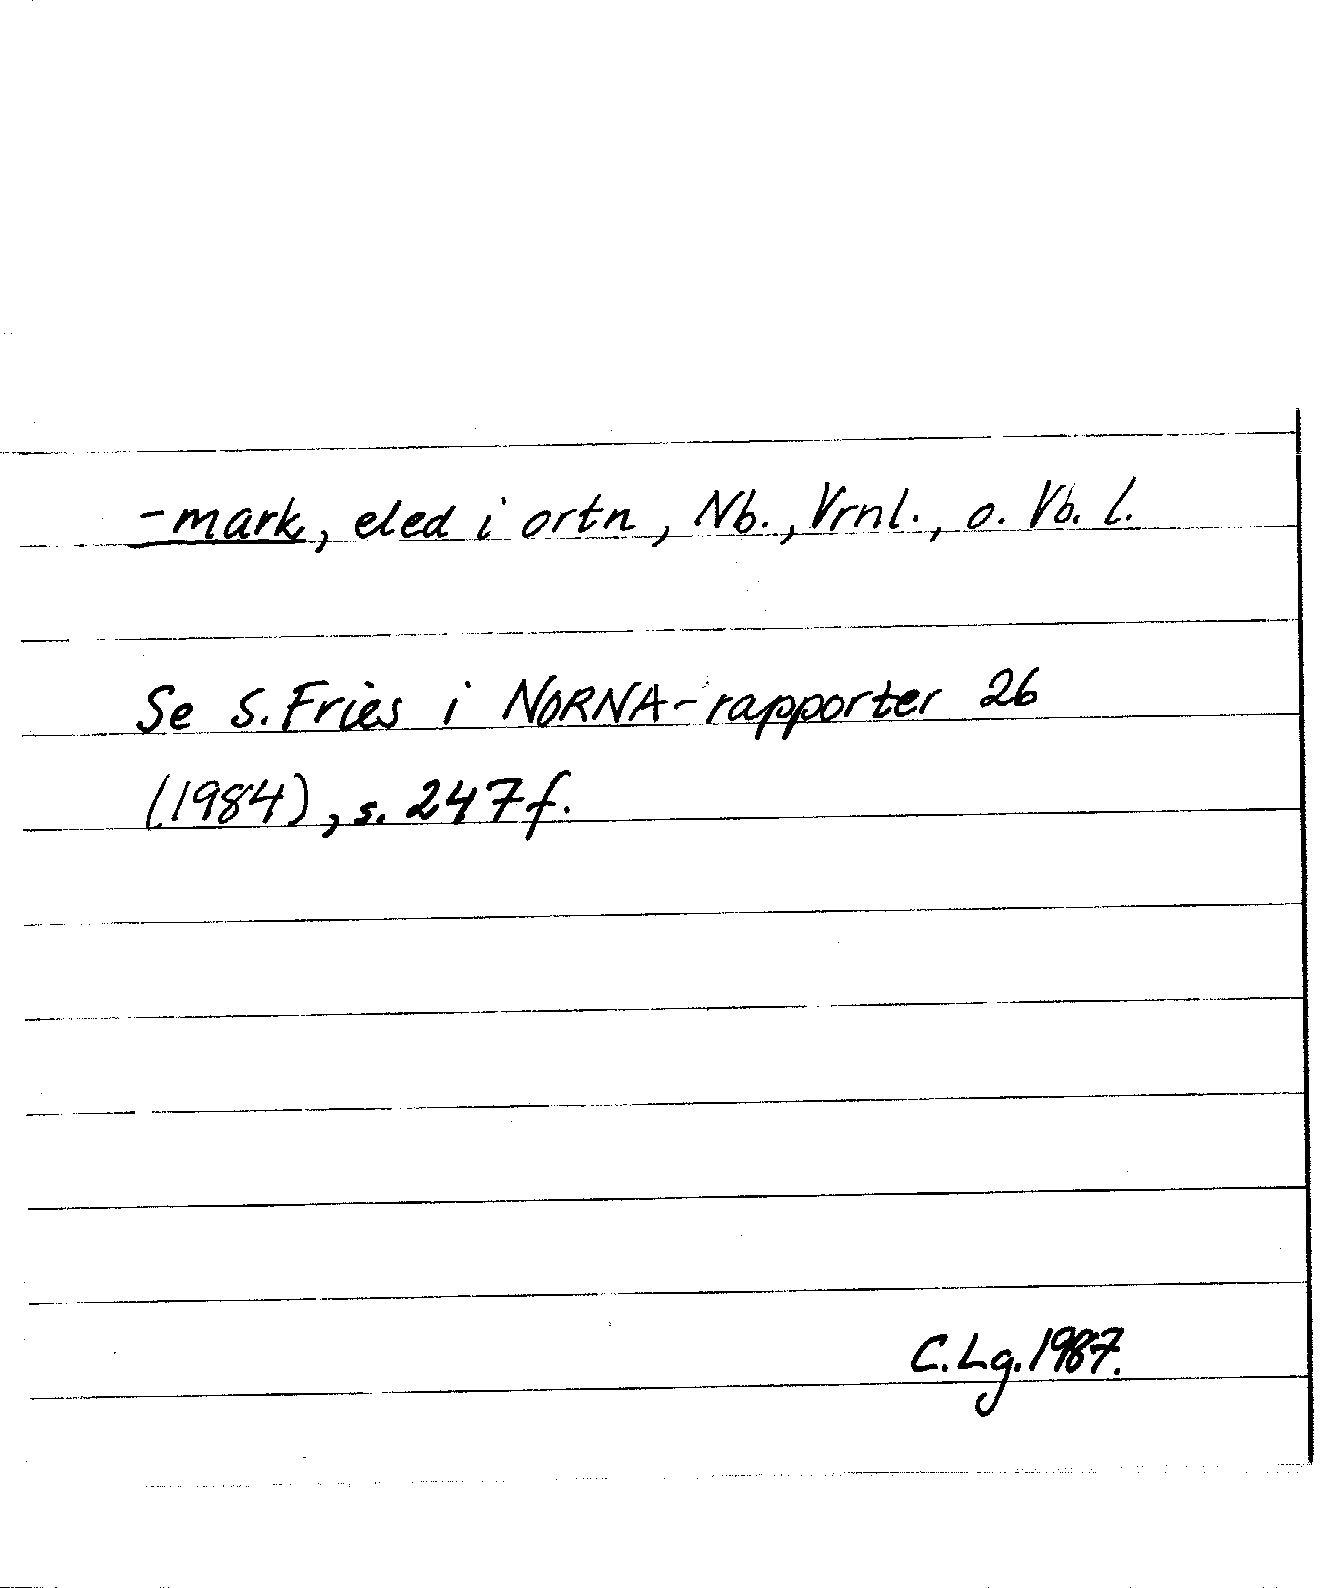 -mark, eled i ortn, Nb., Vrnl., o. Vb. l.
Se S. Fries i NORNA-rapporter 26
(1984), s. 247 f.
C. Lg. 1987.